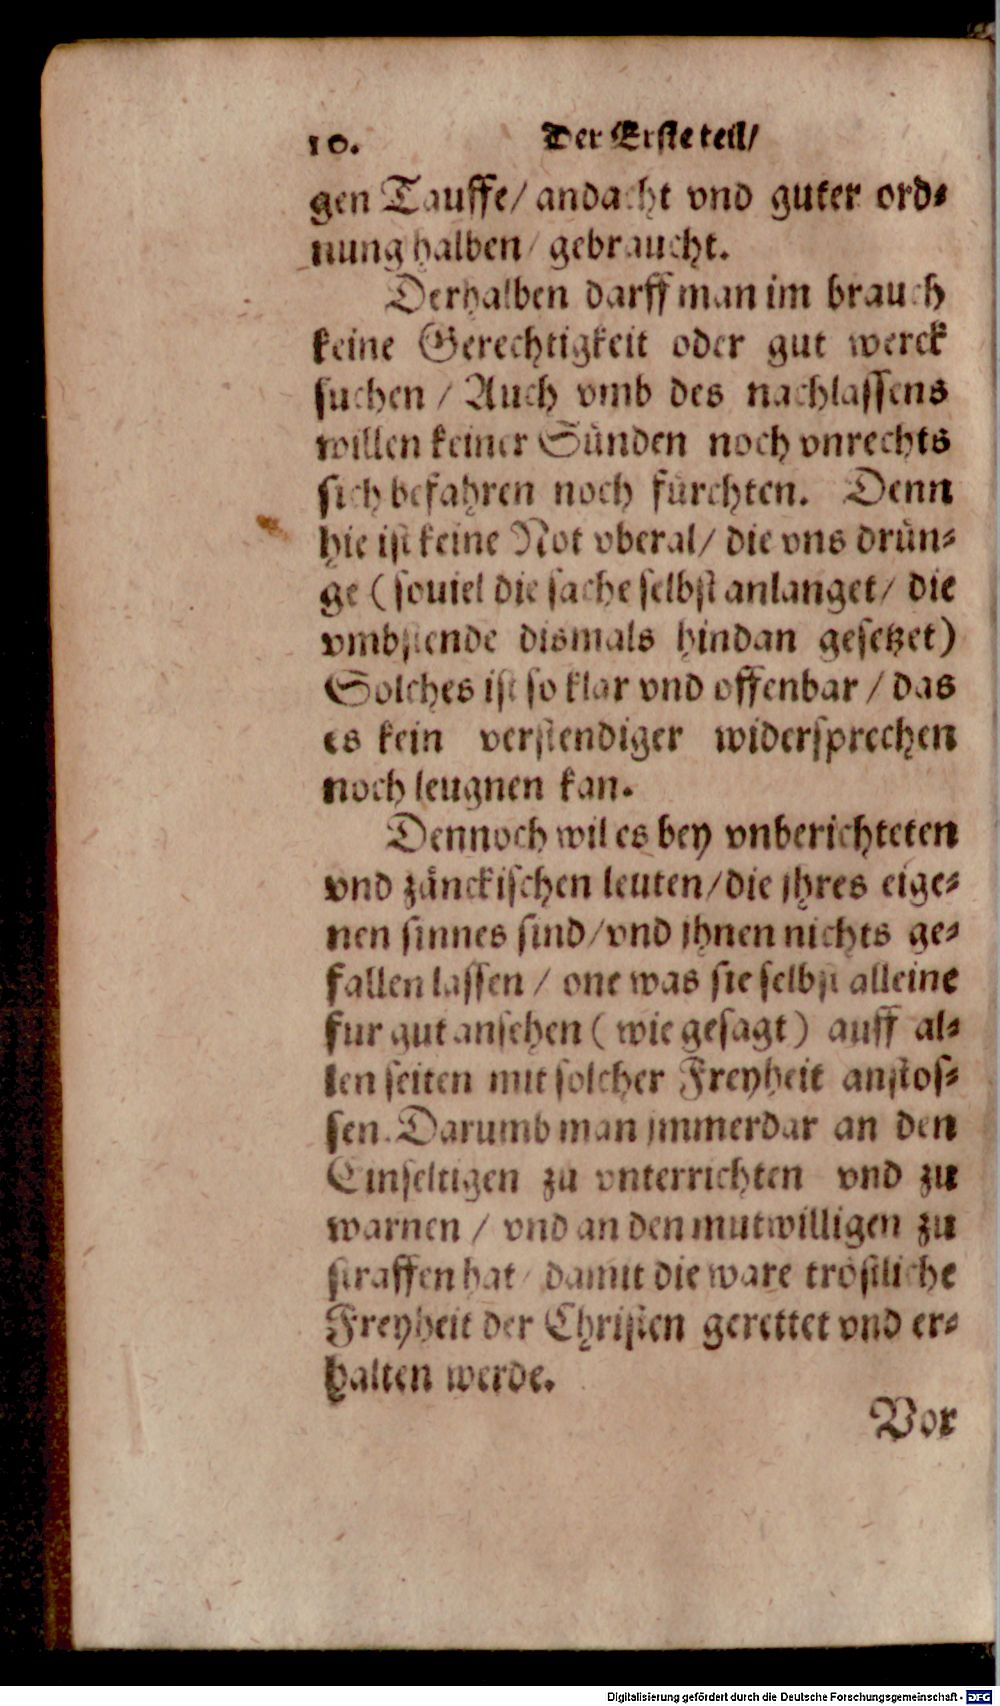 10. Der Erste teil/
gen Tauffe/ andacht vnd guter ord-
nung halben/ gebraucht.
Derhalben darff man im brauch
keine Gerechtigkeit oder gut werck
suchen / Auch vmb des nachlassens
willen keiner Sünden noch vnrechts
sich befahren noch fürchten. Denn
hie ist keine Not vberal/ die vns drün-
ge (souiel die sache selbst anlanget/ die
vmbstende dismals hindan gesetzet)
Solches ist so klar vnd offenbar / das
es kein verstendiger widersprechen
noch leugnen kan.
Dennoch wil es bey vnberichteten
vnd zänckischen leuten/die jhres eige-
nen sinnes sind/vnd jhnen nichts ge-
fallen lassen / one was sie selbst alleine
fur gut ansehen (wie gesagt) auff al-
len seiten mit solcher Freyheit anstos-
sen. Darumb man jmmerdar an den
Einfeltigen zu vnterrichten vnd zu
warnen / vnd an den mutwilligen zu
straffen hat/ damit die ware tröstliche
Freyheit der Christen gerettet vnd er-
halten werde.
Vor
Digitalisierung gefördert durch die Deutsche Forschungsgemeinschaft - DFG